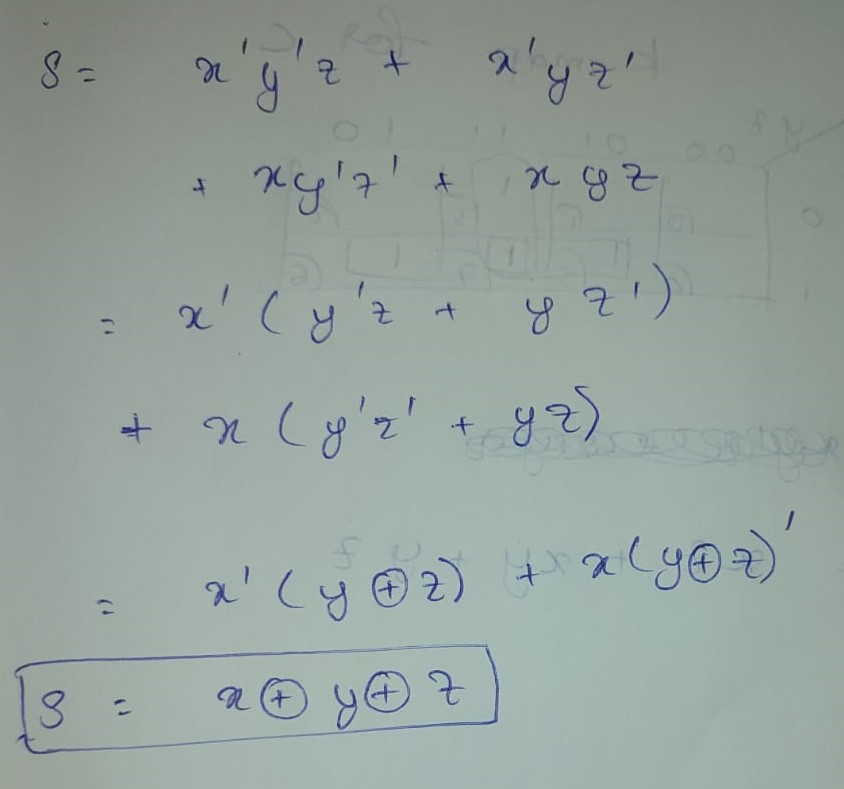 S = x'y'z + x'yz'
+ xy'z' + xyz
= x' (y'z + yz')
+ x (y'z' + yz)
= x' (y ⊕ z) + x(y⊕z)'
S = x ⊕ y ⊕ z